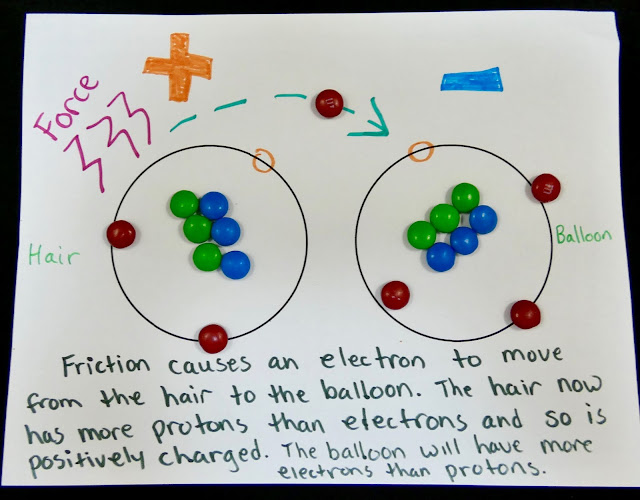 Force
Hair
Balloon
Friction causes an electron to move
from the hair to the balloon. The hair now
has more protons than electrons and so is
positively charged. The balloon will have more
electrons than protons.